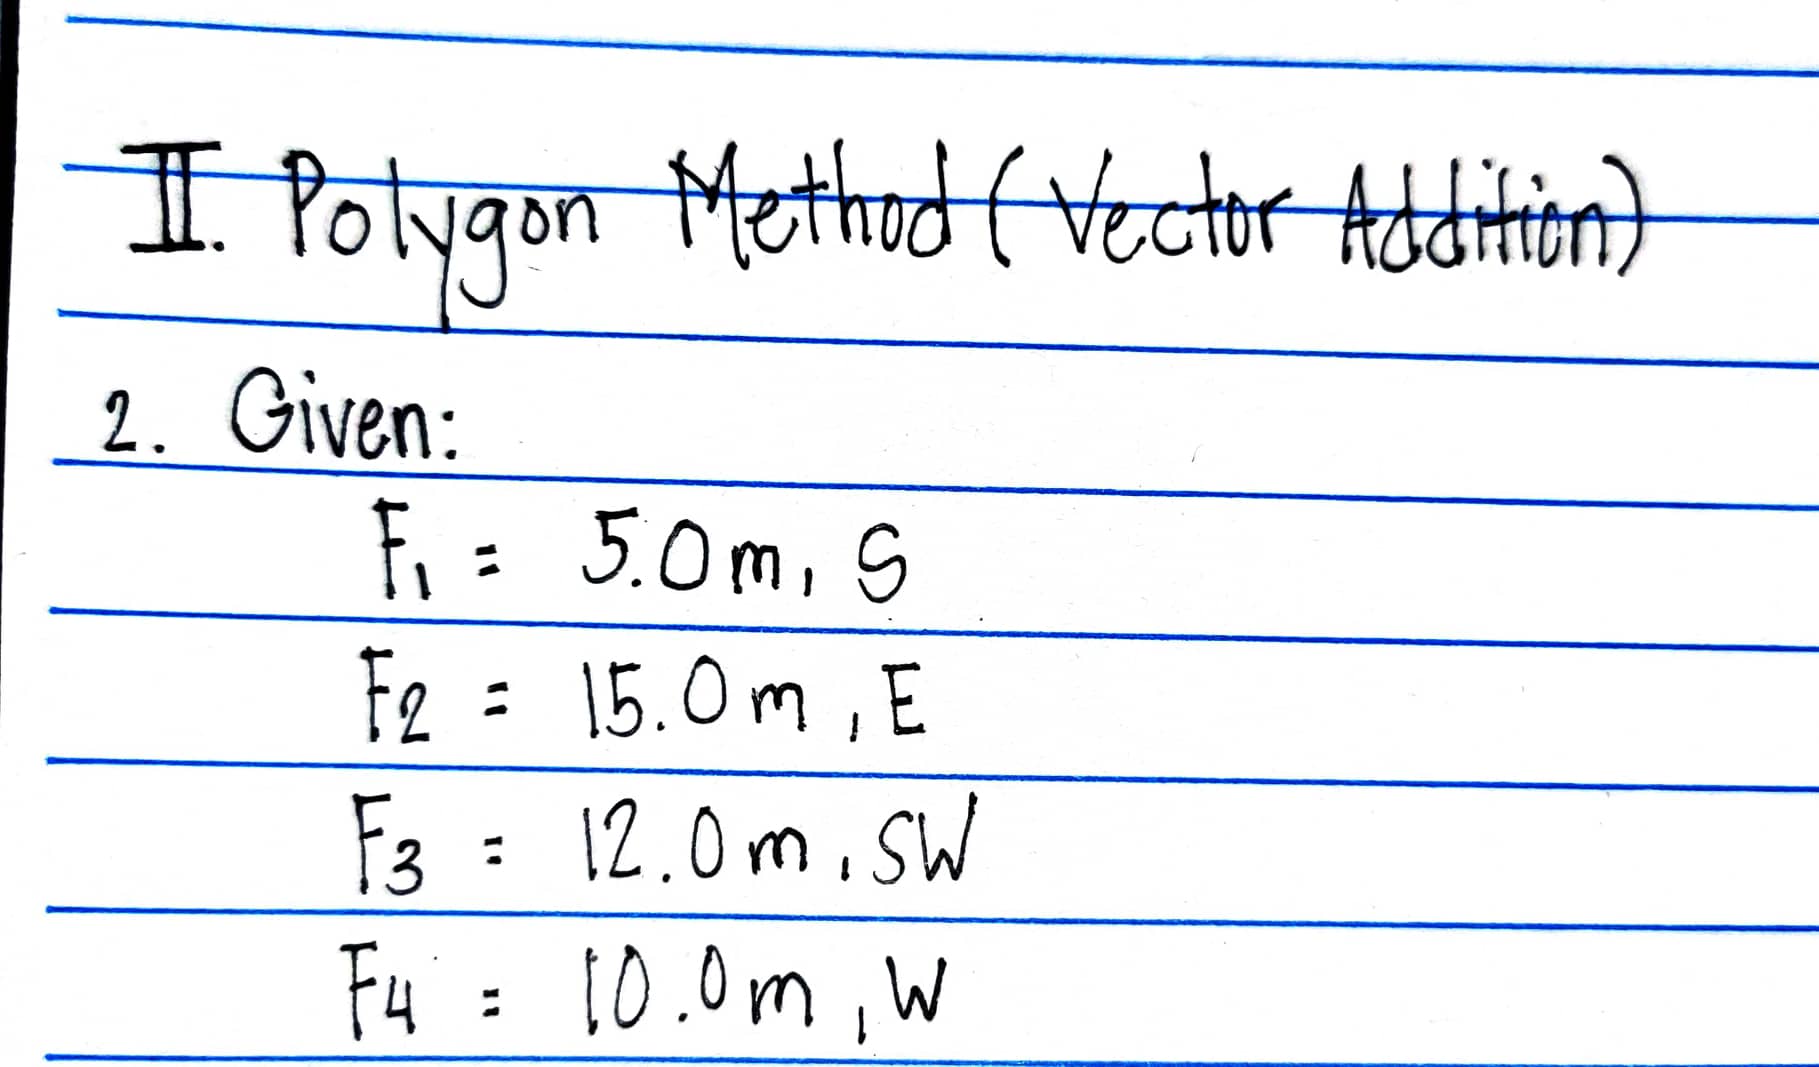 II. Polygon Method (Vector Addition)
2. Given:
F₁ = 5.0m, S
F2 = 15.0m, E
F3 = 12.0m, SW
F4 = 10.0m, W